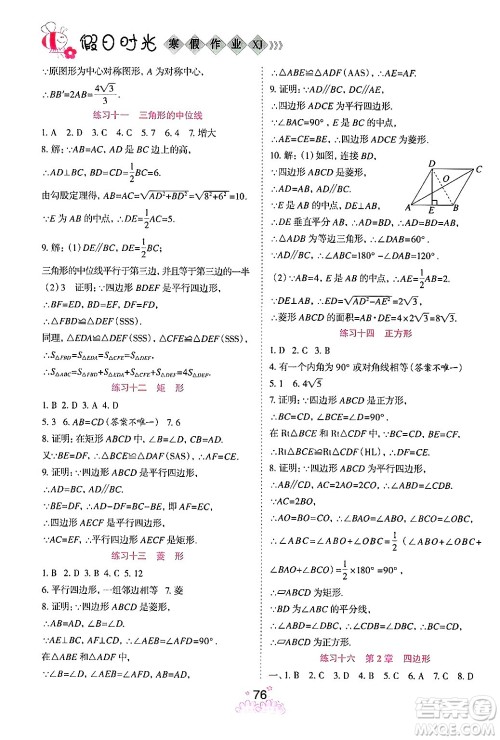 假日时光 寒假作业 XJ
∵原图形为中心对称图形，A 为对称中心，
∴BB′=2AB=4√3/3.
练习十一 三角形的中位线
1. A 2. D 3. C 4. D 5. A 6. 7 7. 增大
8. 解：∵AB=AC，AD 是 BC 边上的高，
∴AD⊥BC，BD=CD=1/2BC=6.
由勾股定理得，AB=AC=√(AD²+BD²)=√(8²+6²)=10.
∵E 为 AB 的中点，∴DE=1/2AC=5.
9. 解：(1)DE∥BC，DE=1/2BC
三角形的中位线平行于第三边，并且等于第三边的一半
(2)3 证明：∵四边形 DECF 是平行四边形，
∴BF=ED，BD=EF.
∵DF=FD，∴△FBD≌△DEF(SSS).
同理，△EDA≌△DEF，△CFE≌△DEF(SSS)，
∴S△FBD=S△EDA=S△CFE=S△DEF，
∴4S△FBD=4S△EDA=4S△CFE=S△ABC.
练习十二 矩 形
1. B 2. D 3. C 4. A
5. 3 6. AB=CD(答案不唯一) 7. 6
8. 证明：在矩形 ABCD 中，∠B=∠D，AB=CD.
又∵BE=DF，∴△ABE≌△CDF.
9. 证明：∵四边形 ABCD 是平行四边形，
∴AD∥BC，AD=BC.
又∵BE=DF，∴AF=EC，
∴四边形 AECF 是平行四边形.
∵AC=EF，∴平行四边形 AECF 是矩形.
练习十三 菱 形
1. B 2. A 3. B 4. C 5. 12
6. 平行四边形，一组邻边相等 7. 菱
8. 证明：∵四边形 ABCD 是菱形，
∴AB=AD，∠B=∠D.
∵AE⊥BC，AF⊥CD，∴∠AEB=∠AFD=90°.
在△ABE 和△ADF 中，
∵∠AEB=∠AFD，∠B=∠D，AB=AD，
∴△ABE≌△ADF(AAS)，∴BE=DF.
9. 证明：∵AE∥CD，CE∥AB，
∴四边形 ADCE 是平行四边形.
∵∠ACB=90°，D 是 AB 的中点，
∴CD=1/2AB=AD，∴四边形 ADCE 为菱形.
10. 解：(1)如图，连接 BD，
D
C
A
E
B
∵四边形 ABCD 为菱形，
∴AD=AB.
∵E 是 AB 的中点，DE⊥AB，
∴DE 垂直平分 AB，∴AD=DB，
∴△DAB 为等边三角形，∴∠DAB=60°.
∵AD∥BC，∴∠ABC=180°-∠DAB=120°.
(2)∵AD=AB=2，∴AE=1/2AB=1，
∴DE=√(AD²-AE²)=√3，
∴菱形 ABCD 的面积=AB·DE=2√3.
练习十四 正方形
1. D 2. C 3. B
4. 有一个内角为 90° 或对角线相等(答案不唯一)
5. 1 6. 4√5
7. 证明：∵四边形 ABCD 为正方形，
∴AB=CB，∠BAE=∠BCF=90°.
在 Rt△ABE 和 Rt△CBF 中，
∵BE=BF，AB=BC，
∴Rt△ABE≌Rt△CBF(HL)，∴AE=CF.
8. 证明：∵四边形 ABCD 是平行四边形，
∴AB∥CD，AB=CD，∴∠BAO=∠DCO.
∵∠OBC=∠OCD，∴∠OBC=∠BAO.
∵∠ABC=90°，∴∠OBC+∠ABO=90°，
∴∠BAO+∠ABO=90°，
∴∠AOB=180°-(∠BAO+∠ABO)=90°，
∴AC⊥BD，∴▱ABCD 是正方形.
9. 证明：∵▱ABCD 中，∠BAD=90°，
∴▱ABCD 为矩形.
∵BD 为∠ABC 的平分线，
∴∠ABD=1/2∠ABC=1/2×90°=45°，
∴△ABD 为等腰直角三角形，∴AB=AD，
∴▱ABCD 为正方形.
练习十六 第 2 章 四边形
一、1. B 2. C 3. D 4. B 5. D 6. D 7. C
76